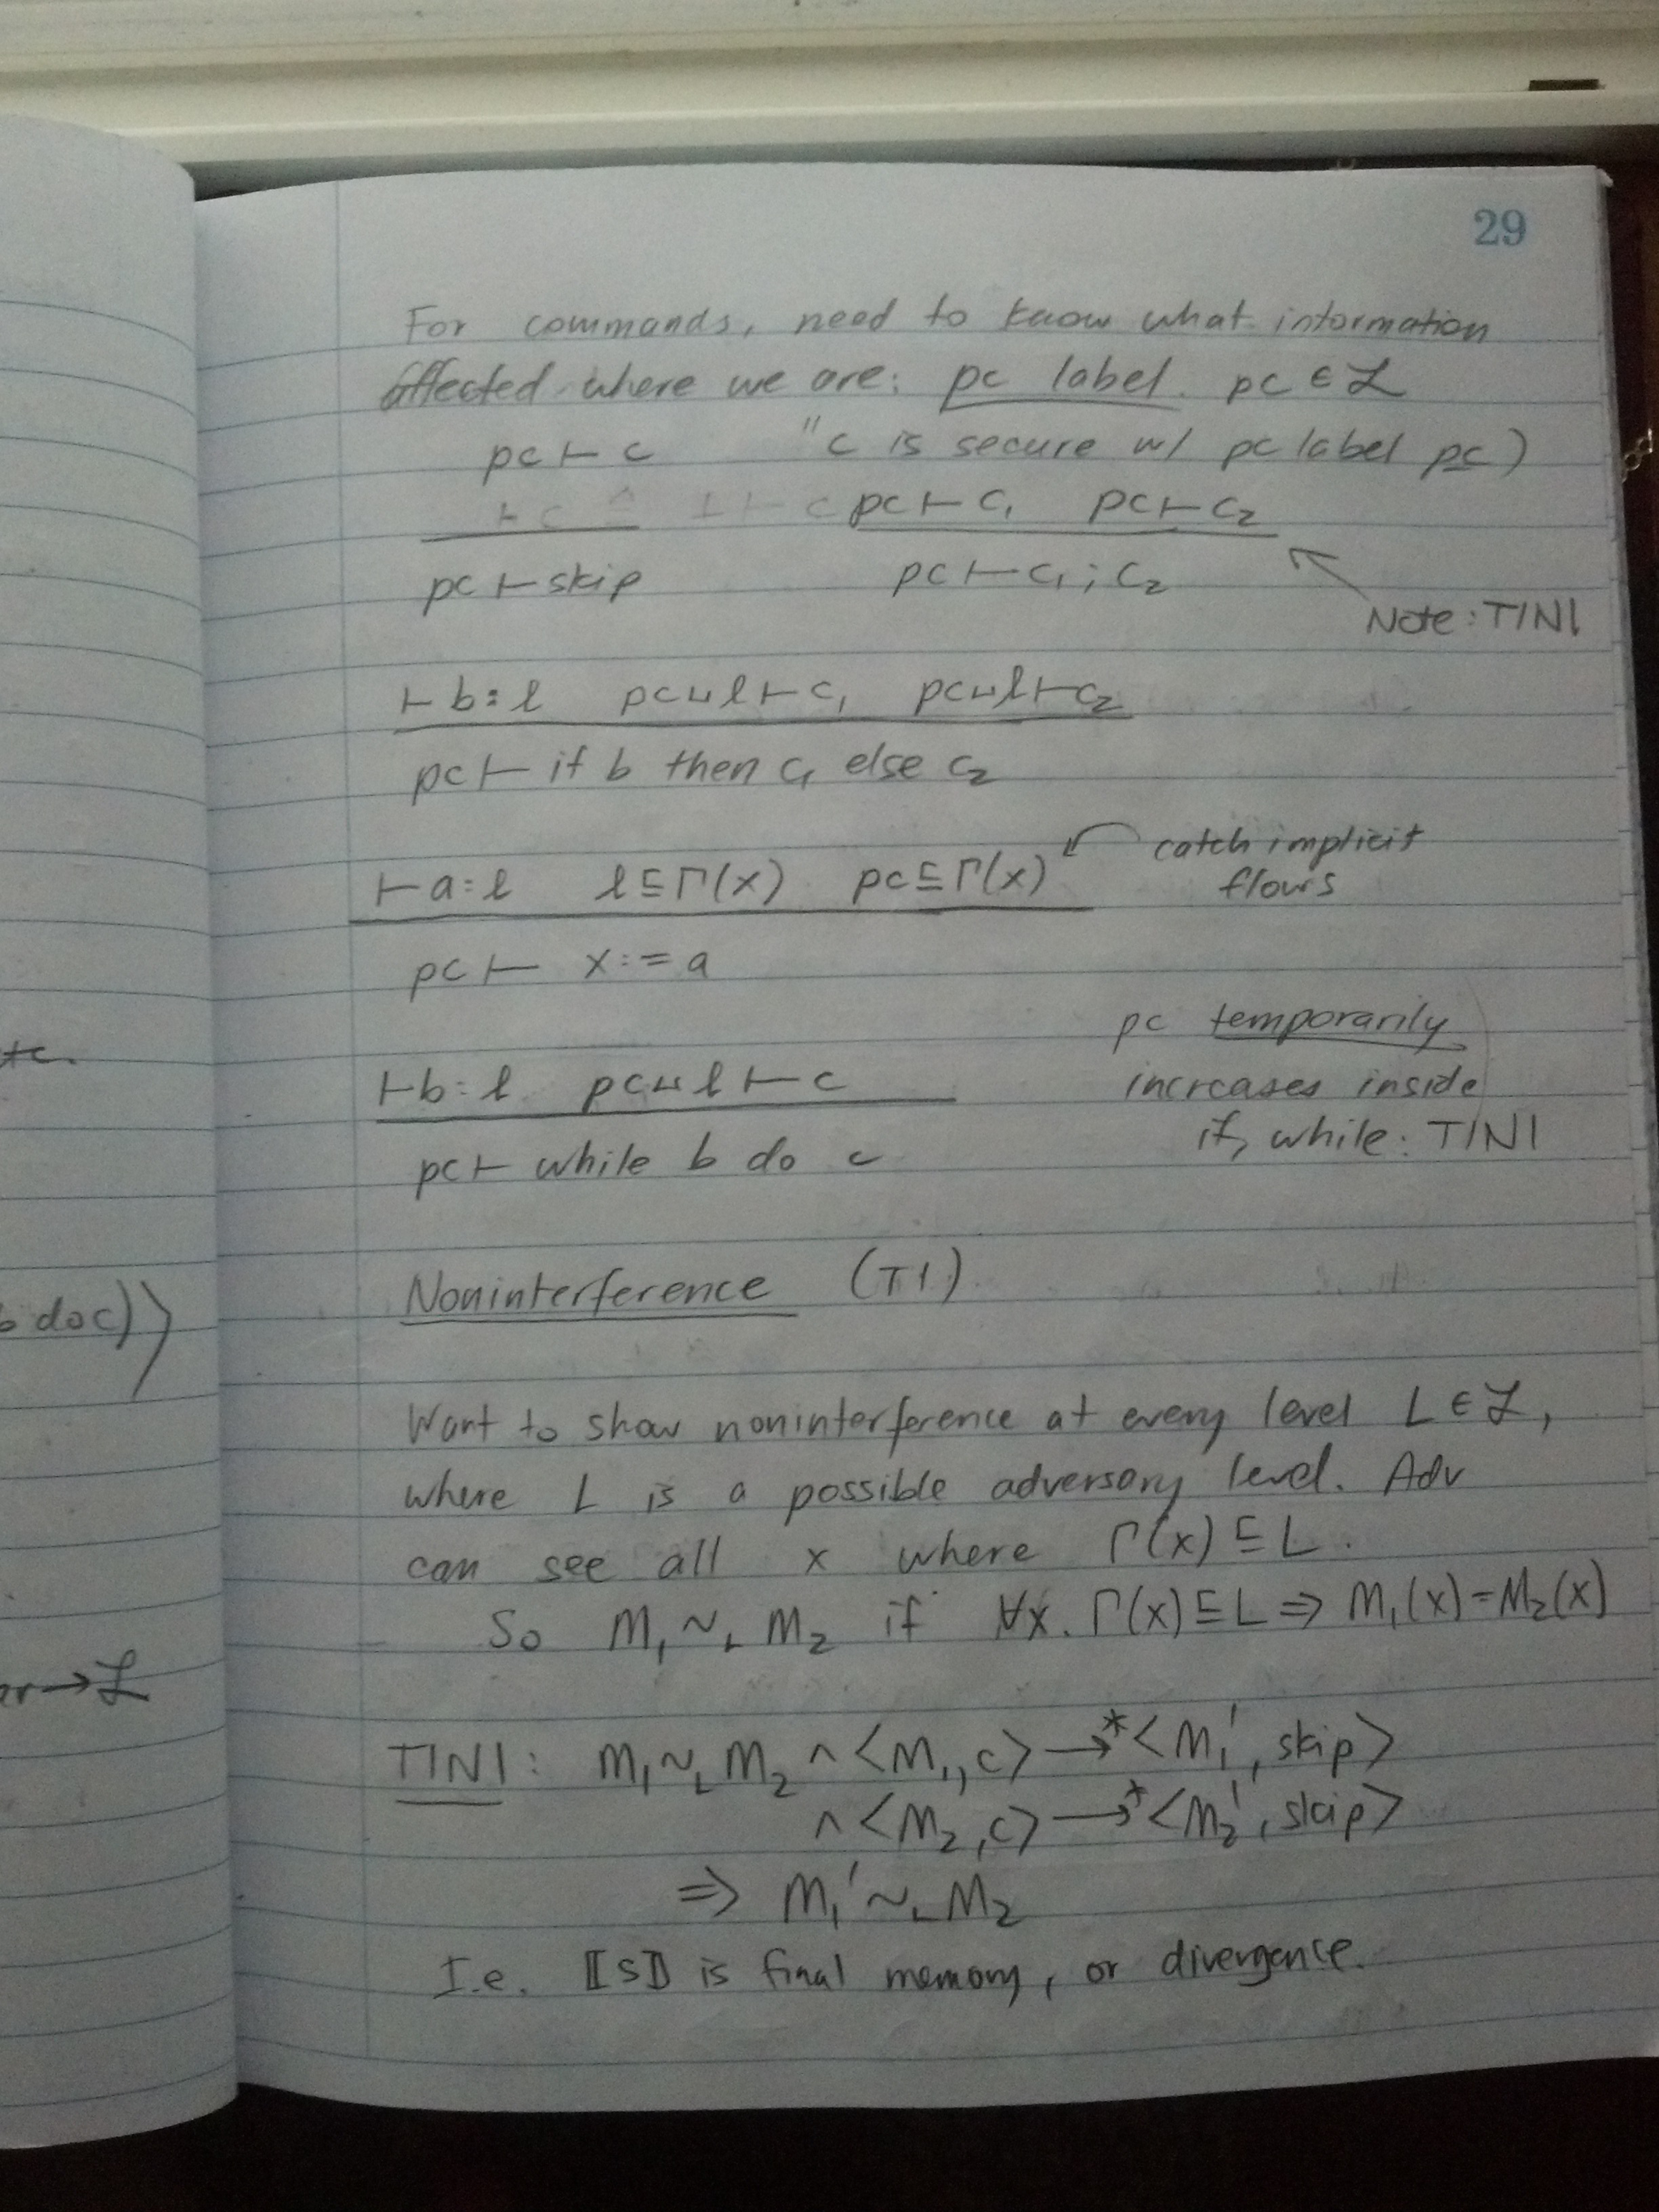 29
For commands, need to know what information
affected where we are: pc label. pc ∈ ℒ
pc ⊢ c "c is secure w/ pc label pc)
pc ⊢ c₁ pc ⊢ c₂
pc ⊢ skip pc ⊢ c₁ ; c₂
Note: TINI
⊢ b : ℓ pc ⊔ ℓ ⊢ c₁ pc ⊔ ℓ ⊢ c₂
pc ⊢ if b then c₁ else c₂
⊢ a : ℓ ℓ ⊑ Γ(x) pc ⊑ Γ(x) catch implicit
flows
pc ⊢ x := a
pc temporarily
⊢ b : ℓ pc ⊔ ℓ ⊢ c increases inside
if, while : TINI
pc ⊢ while b do c
Noninterference (TI)
Want to show noninterference at every level L ∈ ℒ,
where L is a possible adversary level. Adv
can see all x where Γ(x) ⊑ L.
So M₁ ~L M₂ if ∀x. Γ(x) ⊑ L ⇒ M₁(x) = M₂(x)
TINI : M₁ ~L M₂ ∧ <M₁, c> →* <M₁', skip>
∧ <M₂, c> →* <M₂', skip>
⇒ M₁' ~L M₂
I.e. ⟦S⟧ is final memory, or divergence.
tc.
b do c)⟩
ar → ℒ